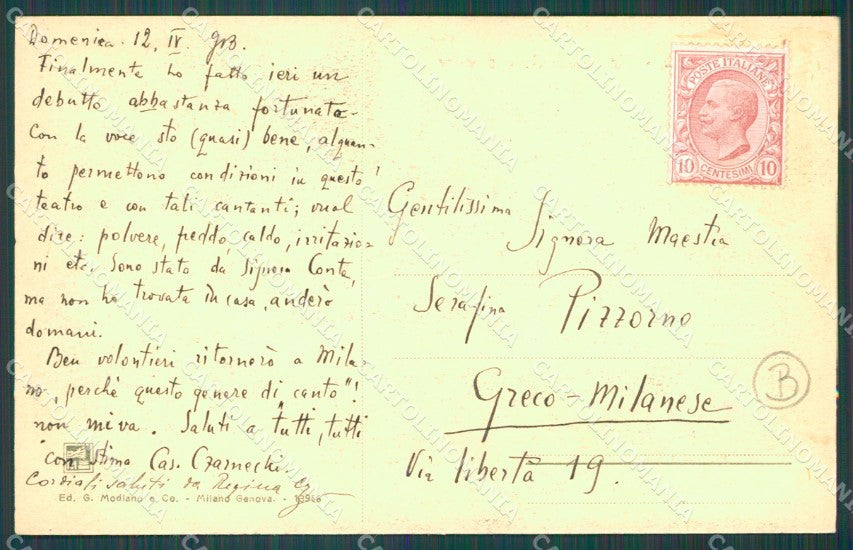 Domenica. 12, IV. 913.
Finalmente ho fatto ieri un
debutto abbastanza fortunato-
Con la voce sto (quasi) bene, alquan-
to permettono condizioni in questo
teatro e con tali cantanti; vuol
dire: polvere, freddo, caldo, irritazio-
ni etc. Sono stato da Signora Conte,
ma non ho trovata in casa, anderò
domani.
Ben volontieri ritornerò a Mila-
no, perchè questo genere di "canto"!
non mi va. Saluti a tutti, tutti
con stima Cas. Czarnecki.
Cordiali saluti da Regina
Ed. G. Modiano e Co. - Milano Genova. -
POSTE ITALIANE
10 CENTESIMI 10
Gentilissima
Signora Maestra
Serafina Pizzorno
Greco-Milanese
Via libertà 19.
B
CARTOLINOMANIA